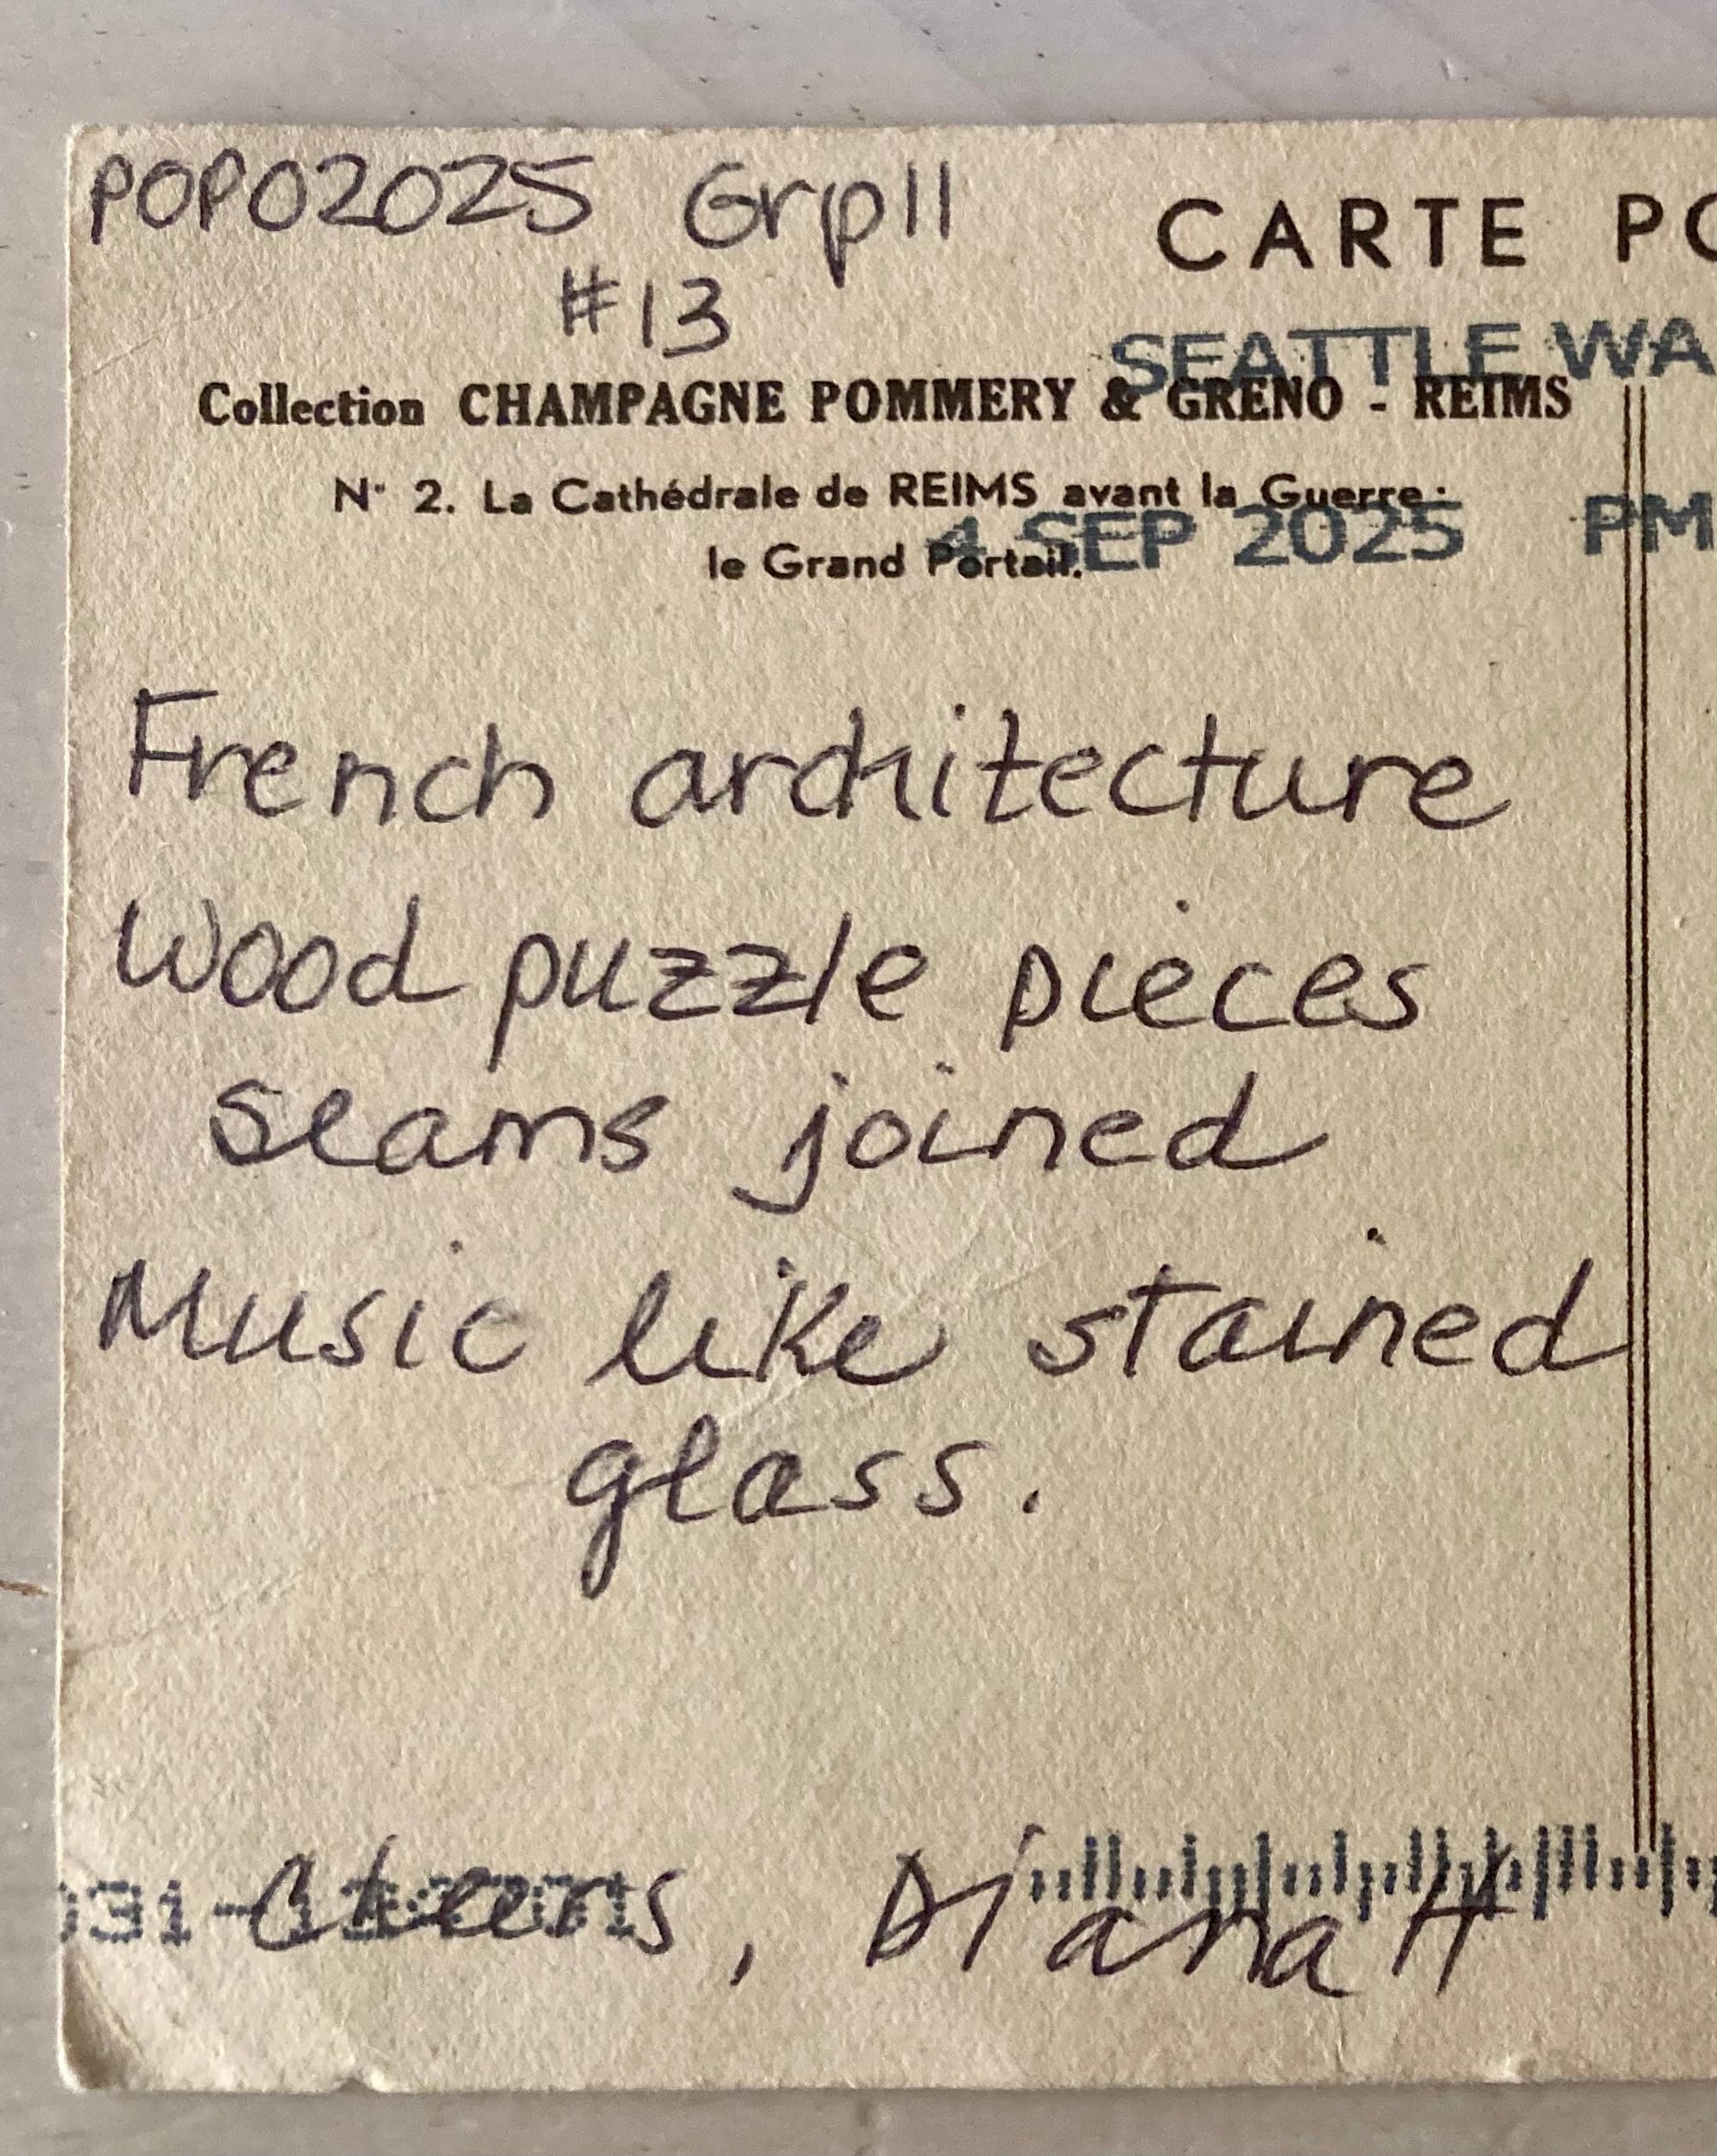 POPO2025 Grp11
#13
CARTE PO
SEATTLE WA
Collection CHAMPAGNE POMMERY & GRENO - REIMS
N° 2. La Cathédrale de REIMS avant la Guerre :
le Grand Portail.
4 SEP 2025 PM
French architecture
Wood puzzle pieces
seams joined
Music like stained
glass.
Cheers, Diana H